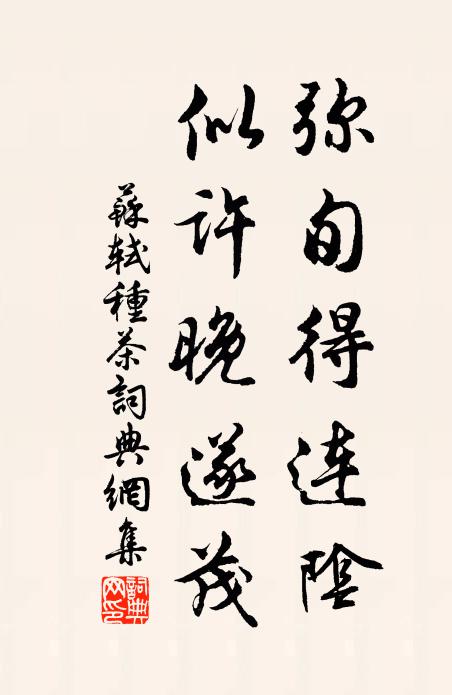 弥旬得連陰
似许晚遂茂
蘇軾種茶詞典網集
詞典網印